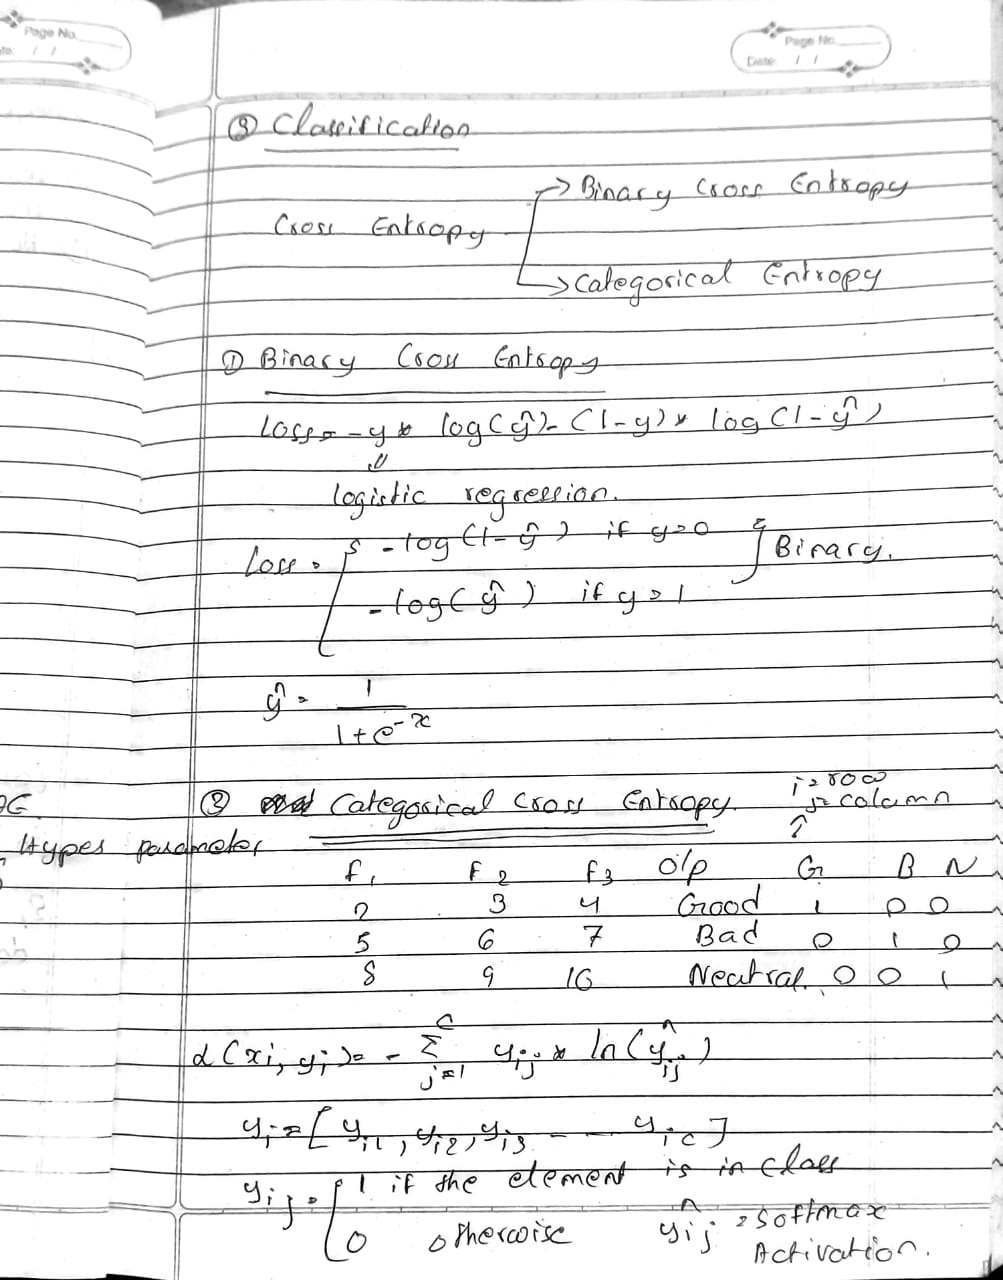 Page No.
te: / /
Page No.
Date: / /
③ Classification
Cross Entropy
→ Binary Cross Entropy
→ Categorical Entropy
① Binary Cross Entropy
Loss = -y * log(ŷ) - (1-y) * log(1-ŷ)
⇓
logistic regression.
Loss = { -log(1-ŷ) if y=0 } Binary.
-log(ŷ) if y=1
ŷ = 1 / (1+e^-x)
i = row
j = column
② Categorical Cross Entropy. ↑
types parameter
F1 F2 F3 O/P G B N
2 3 4 Good 1 0 0
5 6 7 Bad 0 1 0
8 9 10 Neutral. 0 0 1
L(xi, yi) = - Σ_{j=1}^{C} yij * ln(ŷij)
yi = [yi1, yi2, yi3 - - - yic]
yij = [ 1 if the element is in class
0 otherwise ŷij = Softmax
Activation.